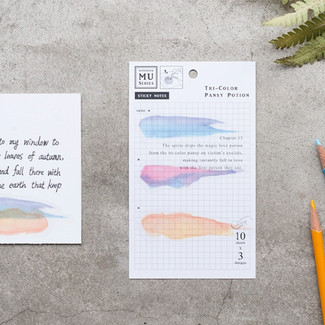 MU
SERIES
STICKY NOTES
TRI-COLOR
PANSY POTION
Chapter 15
The sprite drips the magic love potion
from the tri-color pansy on victim's eyelids,
making instantly fall in love
with the first person they see.
10
x
3
to my window to
hopes of autumn.
and fall there with
the earth that keep